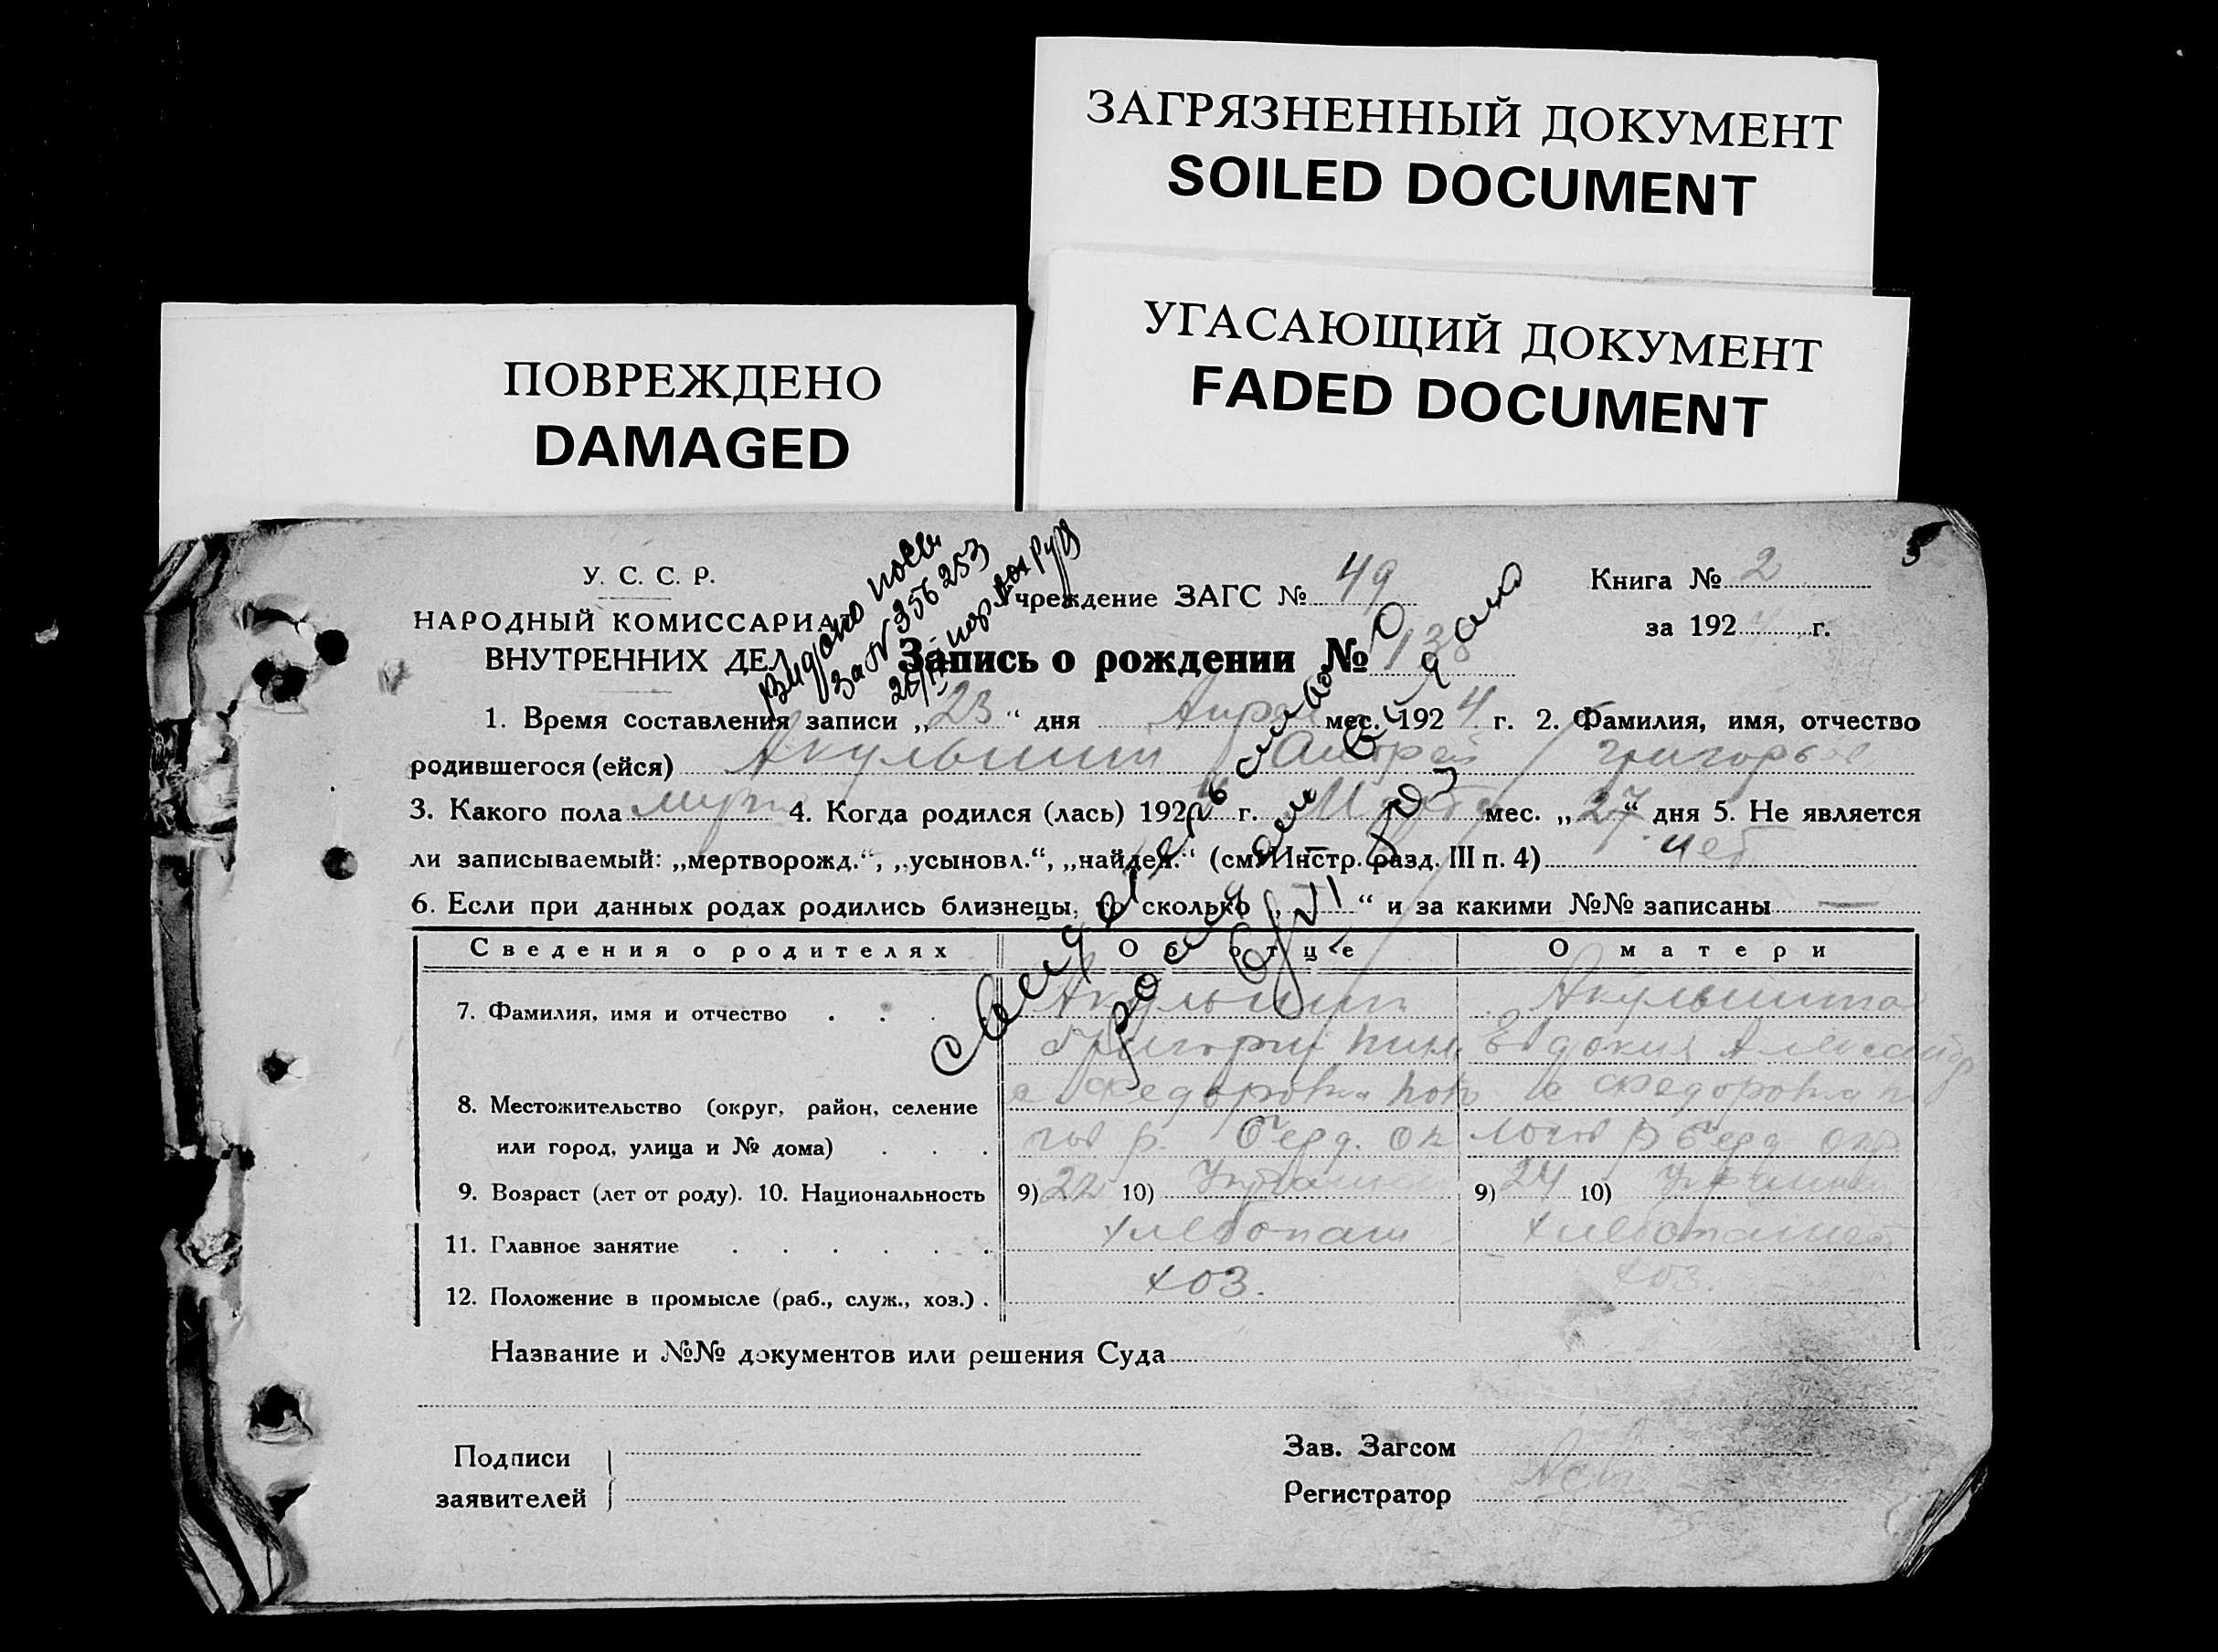 ЗАГРЯЗНЕННЫЙ ДОКУМЕНТ
SOILED DOCUMENT
УГАСАЮЩИЙ ДОКУМЕНТ
FADED DOCUMENT
ПОВРЕЖДЕНО
DAMAGED
У. С. С. Р.
НАРОДНЫЙ КОМИССАРИАТ
ВНУТРЕННИХ ДЕЛ
Учреждение ЗАГС № 49
Книга № 2
за 192 г.
За № 356253
Запись о рождении № 138
1. Время составления записи „23“ дня Апреля мес. 1924 г. 2. Фамилия, имя, отчество
родившегося (ейся) Акульшин Григорьев
3. Какого пола муж 4. Когда родился (лась) 192 г. Марта мес. „27“ дня 5. Не является
ли записываемый: „мертворожд.“, „усыновл.“, „найден.“ (см. Инстр. разд. III п. 4) нет
6. Если при данных родах родились близнецы, то сколько „ “ и за какими №№ записаны —
Сведения о родителях Об отце О матери
7. Фамилия, имя и отчество Акульшин Акульшина
Григорий Евдокия Александр
8. Местожительство (округ, район, селение с Федоровка с Федоровка
или город, улица и № дома) р. Берд. ок р Берд окр
9. Возраст (лет от роду). 10. Национальность 9) 22 10) 9) 24 10)
11. Главное занятие хлебопаш хлебопашес
12. Положение в промысле (раб., служ., хоз.) хоз. хоз.
Название и №№ документов или решения Суда
Подписи
заявителей
Зав. Загсом
Регистратор